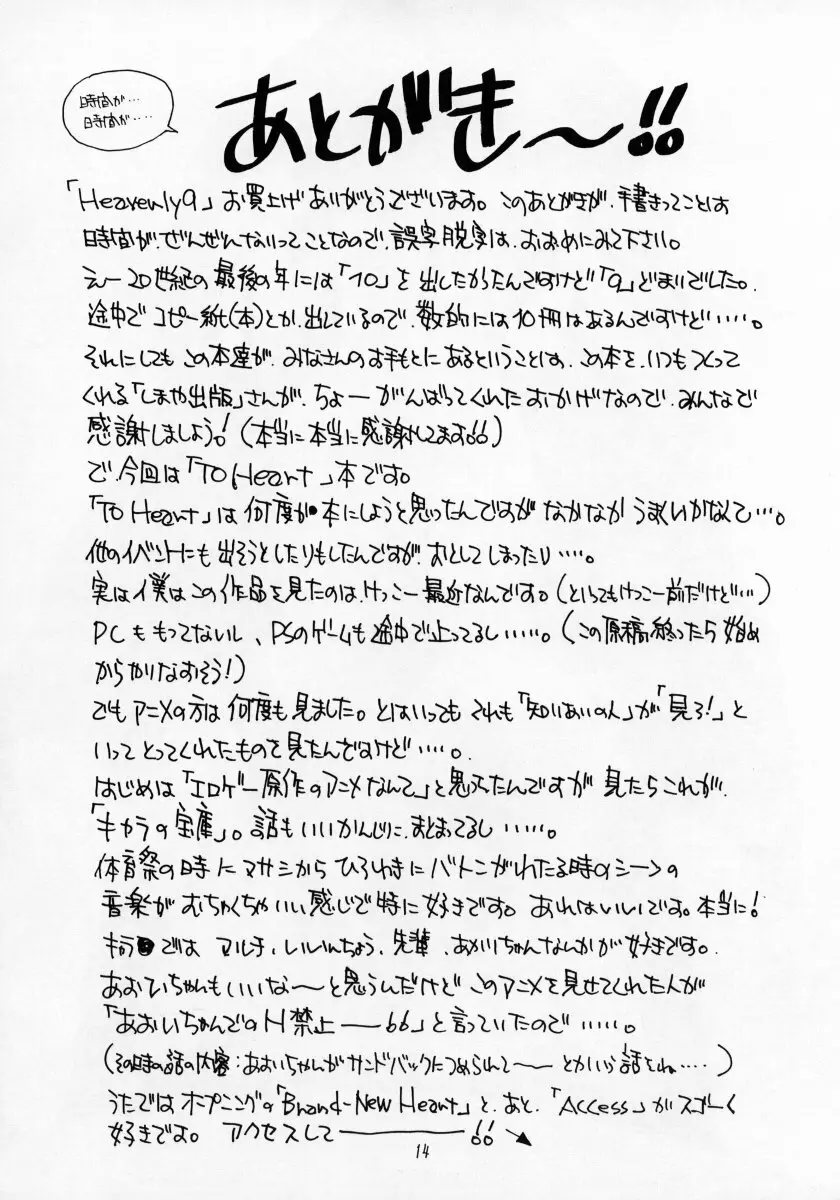 時間が…
時間が‥‥
あとがき〜!!
「Heavenly9」お買上げありがとうございます。このあとがきが、手書きってことは
時間が、ぜんぜんないってことなので、誤字脱字は、おおめにみて下さい。
えー20世紀の最後の年には「10」を出したかったんですけど「9」どまりでした。
途中でコピー紙(本)とか、出しているので、数的には10冊はあるんですけど‥‥‥。
それにしてもこの本達が、みなさんのお手もとにあるということは、この本を、いつもつくって
くれる「しまや出版」さんが、ちょーがんばってくれたおかげなので、みんなで
感謝しましよう!(本当に本当に感謝してます66)
で、今回は「TO Heart」本です。
「TO Heart」は何度か本にしようと思ったんですがなかなかうまくいかなくて…。
他のイベントにも出そうとしたりもしたんですが、おとしてしまったり‥‥。
実は僕はこの作品を見たのは、けっこー最近なんです。(といってもけっこー前だけど…)
PCももってないし、PSのゲームも途中で止ってるし‥‥‥。(この原稿終ったら始め
からやりなおそう!)
でもアニメの方は何度も見ました。とはいってもそれも「知りあいの人」が「見ろ!」と
いってとってくれたものを見たんですけど‥‥。
はじめは「エロゲー原作のアニメなんて」と思ってたんですが見たらこれが、
「キャラの宝庫」。話もいいかんじに、まとまってるし‥‥‥。
体育祭の時にマサシからひろゆきにバトンがわたる時のシーンの
音楽がむちゃくちゃいい感じで特に好きです。あれはいいです。本当に!
キャラでは マルチ、いいんちょう、先輩、あかりちゃんなんかが好きです。
あおいちゃんもいいな〜と思うんだけどこのアニメを見せてくれた人が
「あおいちゃんでのH禁止──66」と言っていたので‥‥‥。
(その時の話の内容:あおいちゃんがサンドバックにつめられて──とかいう話をね‥‥)
うたではオープニングの「Brand-New Heart」と、あと、「Access」がスゴーく
好きです。アクセスして────!!
14